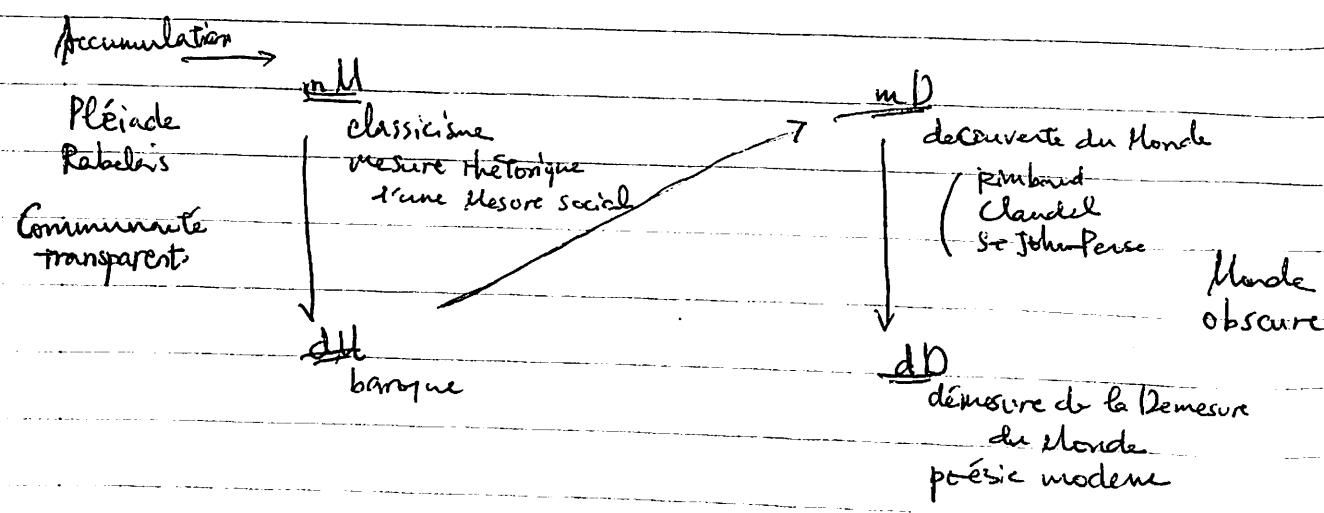 Accumulation
Pléiade
Rabelais
Communauté
transparent
mM
classicisme
mesure rhétorique
d'une Mesure social
dM
baroque
mD
decouverte du Monde
Rimbaud
Claudel
St John Perse
dD
démesure de la Demesure
du Monde
poésie moderne
Monde
obscure